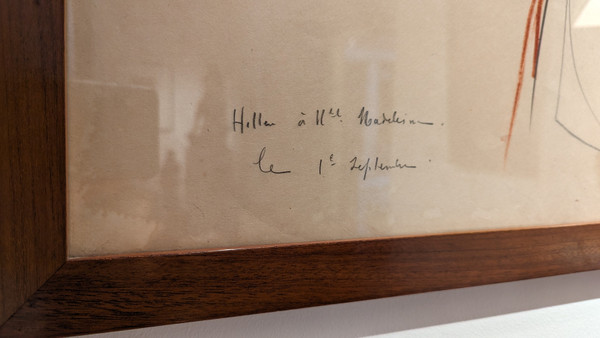 Helleu à Mlle. Madeleine.
le 1e Septembre